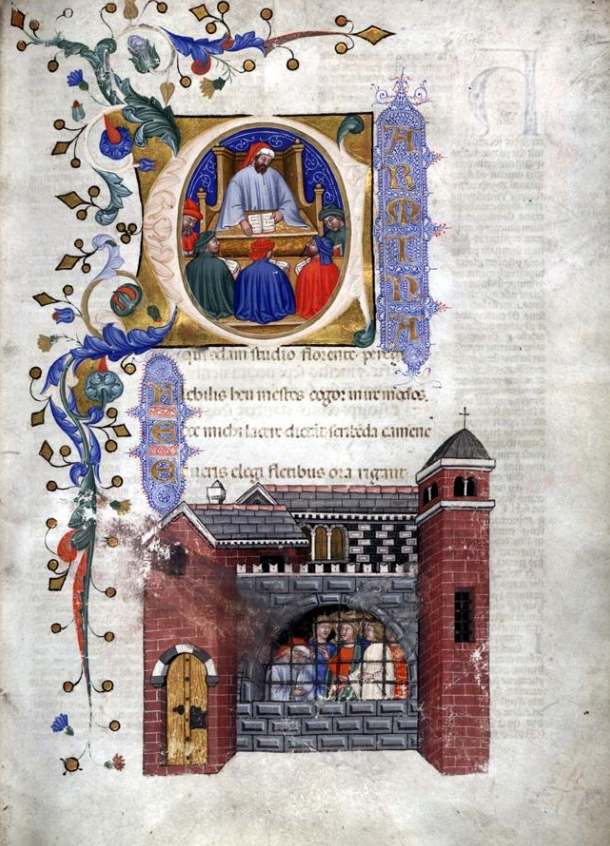 CARMINA
qui q̄dam studio florente peregi
Flebilis heu mestos cogor inire modos.
Ecce michi lacere dictāt scribēda camene
Et ueris elegi fletibus ora rigant